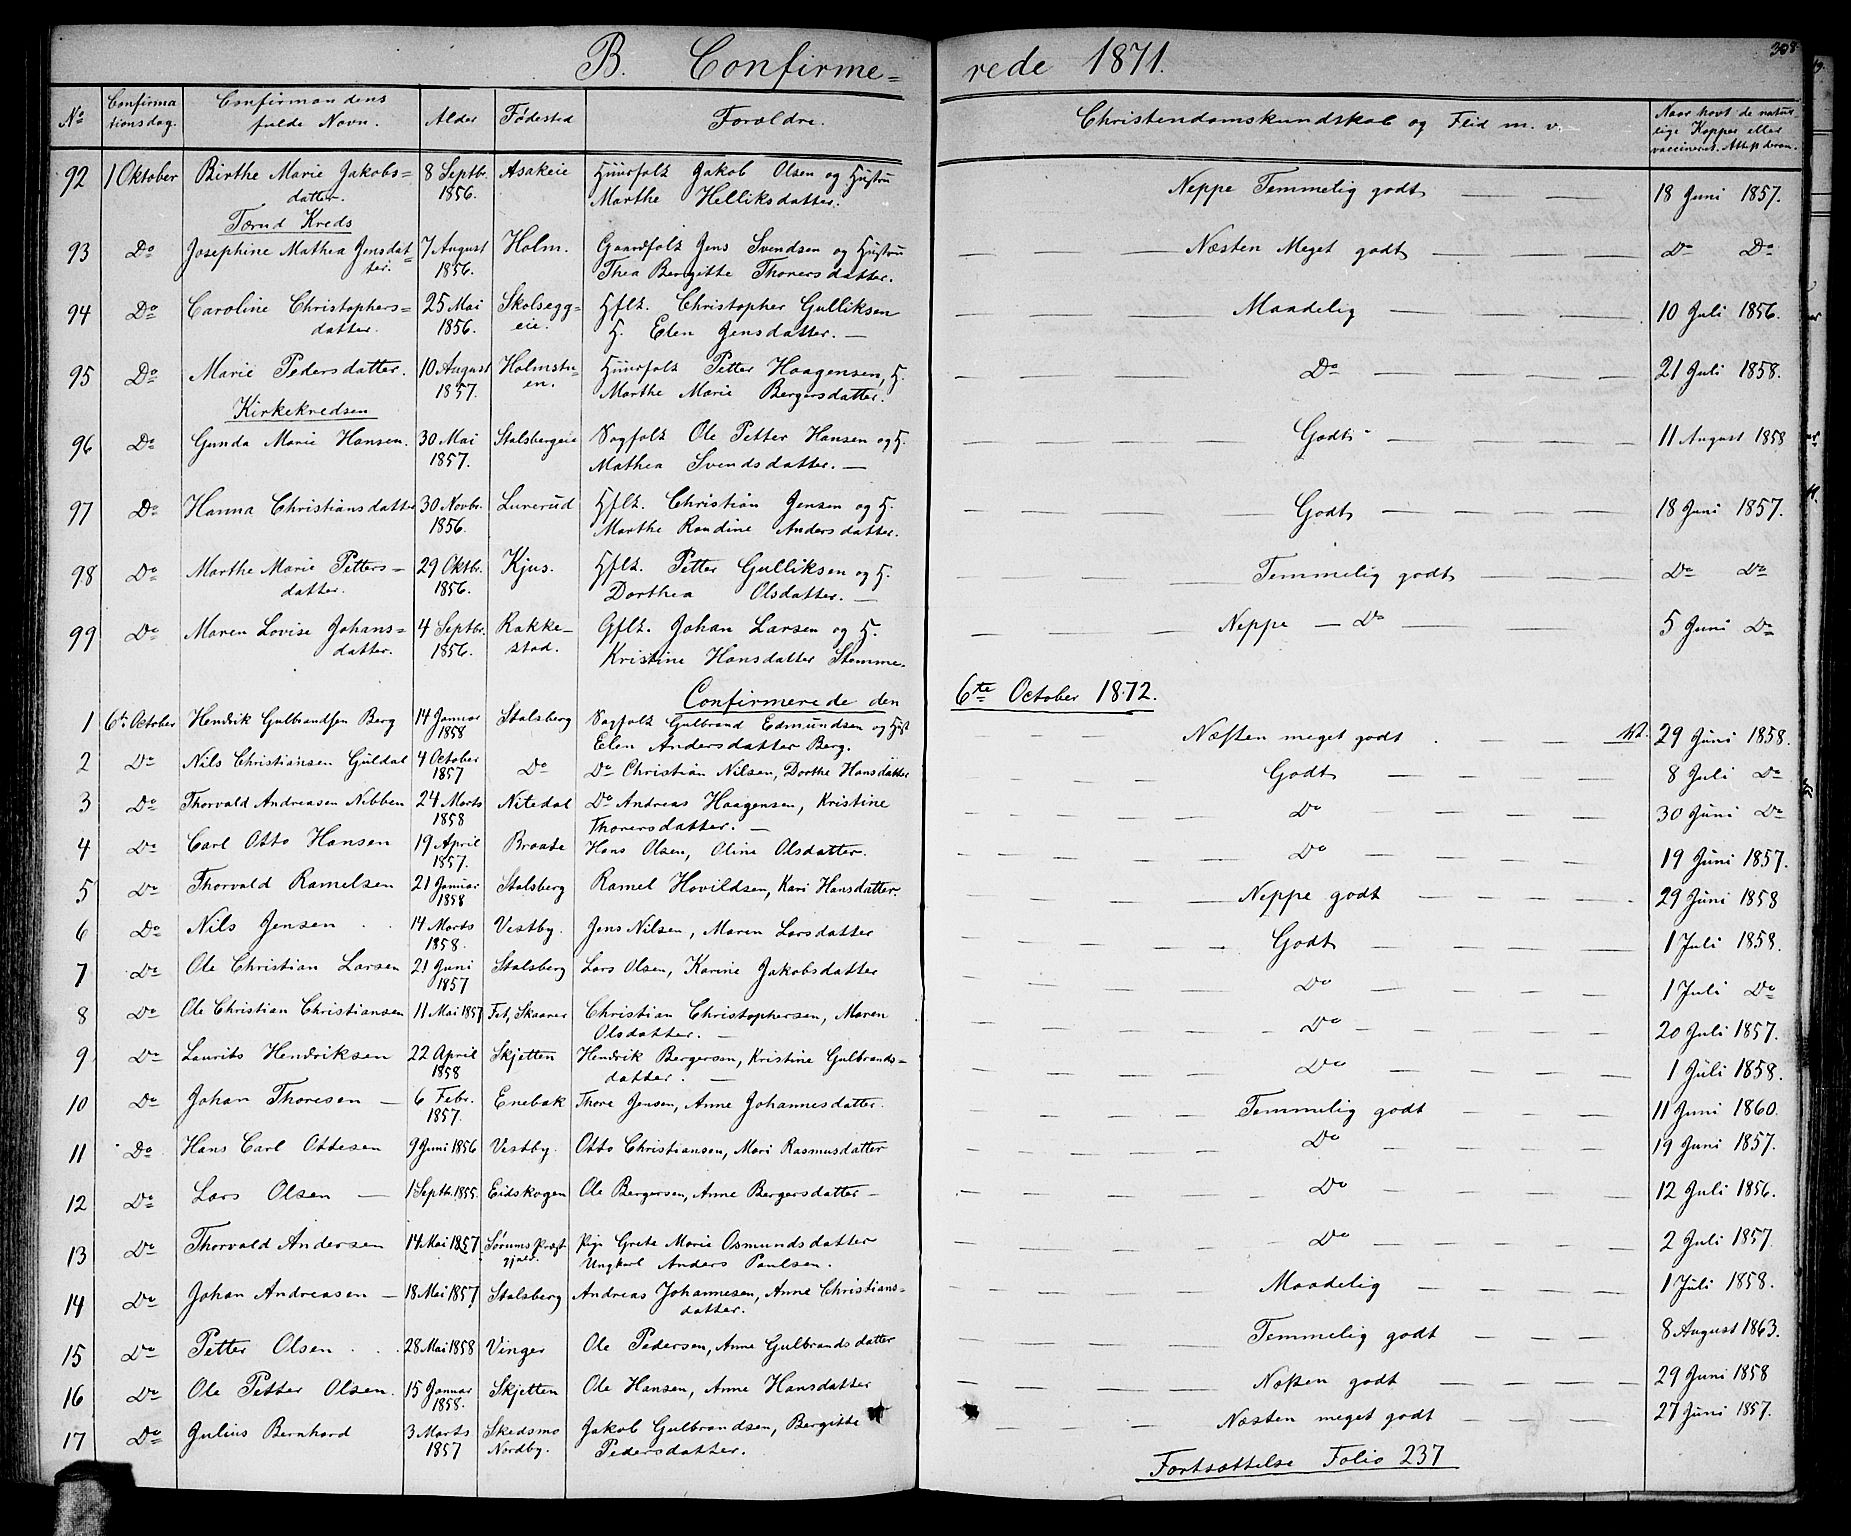 B. Confirme=
rede 1871.
308
No
Confirma
tionsdag.
Confirmandens
fulde Navn.
Alder
Fødested
Forældre.
Christendomskundskab og Flid m. v.
Naar havt de natur
lige Kopper eller
vaccineret. Attest derom.
92 1 Oktober Birthe Marie Jakobs= 8 Septbr. Asakeie Huusfolk Jakob Olsen og Hustru Neppe Temmelig godt 18 Juni 1857.
datter. 1856. Marthe Helliksdatter.
Tærud Kreds
93 Do Josephine Mathea Jensdat= 7 August Holm. Gaardfolk Jens Svendsen og Hustru Næsten Meget godt Do Do
ter. 1856. Thea Bergitte Thorersdatter.
94 Do Caroline Christophers= 25 Mai Skolsegg= Hflk. Christopher Gulliksen Maadelig 10 Juli 1856.
datter. 1856. eie. H. Elen Jensdatter. —
95 Do Marie Pedersdatter. 10 August Holmstu= Huusfolk Petter Haagensen, H. Do 21 Juli 1858.
1857. en. Marthe Marie Bergersdatter.
Kirkekredsen
96 Do Gunda Marie Hansen. 30 Mai Stalsbergeie Sagfolk Ole Petter Hansen og H. Godt 11 August 1858
1857. Mathea Svendsdatter. —
97 Do Hanna Christiansdatter 30 Novbr. Lunerud Hflk. Christian Jensen og H. Godt 18 Juni 1857.
1856. Marthe Randine Andersdatter.
98 Do Marthe Marie Petters= 29 Oktbr. Kjus. Hflk. Petter Gulliksen og H. Temmelig godt Do Do
datter. 1856. Dorthea Olsdatter. —
99 Do Maren Lovise Johans= 4 Septbr. Rakke= Gflk. Johan Larsen og H. Neppe — Do 5 Juni Do
datter. 1856. stad. Kristine Hansdatter Stomme.
Confirmerede den 6te October 1872.
1 6te October Hendrik Gulbrandsen Berg 14 Januar Stalsberg Sagfolk Gulbrand Edmundsen og Hust Næsten meget godt 29 Juni 1858.
1858 Elen Andersdatter Berg.
2 Do Nils Christiansen Guldal 4 October Do Do Christian Nilsen, Dorthe Hansdatter Godt 8 Juli Do
1857
3 Do Thorvald Andreasen Nibben 24 Marts Nitedal Do Andreas Haagensen, Kristine Do 30 Juni Do
1858 Thorersdatter. —
4 Do Carl Otto Hansen 19 April Braate Hans Olsen, Oline Olsdatter. Do 19 Juni 1857.
1857.
5 Do Thorvald Ramelsen 21 Januar Stalsberg Ramel Hovildsen, Kari Hansdatter. Neppe godt 29 Juni 1858
1858
6 Do Nils Jensen 14 Marts Vestby. Jens Nilsen, Maren Larsdatter Godt 1 Juli 1858.
1858.
7 Do Ole Christian Larsen 21 Juni Stalsberg Lars Olsen, Karine Jakobsdatter Do 1 Juli Do
1857
8 Do Ole Christian Christiansen 11 Mai 1857 Fet, Skaarer Christian Christophersen, Maren Do 20 Juli 1857.
Olsdatter. —
9 Do Laurits Hendriksen 22 April Skjetten Hendrik Bergersen, Kristine Gulbrands= Do 1 Juli 1858.
1858 datter. —
10 Do Johan Thoresen — 6 Febr. Enebak Thore Jensen, Anne Johannesdatter. Temmelig godt 11 Juni 1860.
1857.
11 Do Hans Carl Ottesen 9 Juni 1856 Vestby. Otto Christiansen, Mari Rasmusdatter Do 19 Juni 1857.
12 Do Lars Olsen — 1 Septb. 1855. Eidskogen Ole Bergersen, Anne Bergersdatter — Do 12 Juli 1856.
13 Do Thorvald Andersen 14 Mai 1857 Sørums Præst Pige Grete Marie Osmundsdatter Do 2 Juli 1857.
gjeld. Ungkarl Anders Paulsen.
14 Do Johan Andreasen — 18 Mai 1857 Stalsberg Andreas Johannesen, Anne Christians= Maadelig 1 Juli 1858.
datter.
15 Do Petter Olsen 28 Mai 1858 Vinger Ole Pedersen, Anne Gulbrandsdatter Temmelig godt 8 August 1863.
16 Do Ole Petter Olsen. 15 Januar Skjetten Ole Hansen, Anne Hansdatter Næsten godt 29 Juni 1858
1858.
17 Do Julius Bernhard 3 Marts Skedsmo Jakob Gulbrandsen, Bergitte Næsten meget godt 27 Juni 1857.
1857 Nordby. Pedersdatter.
Fortsættelse Folio 237